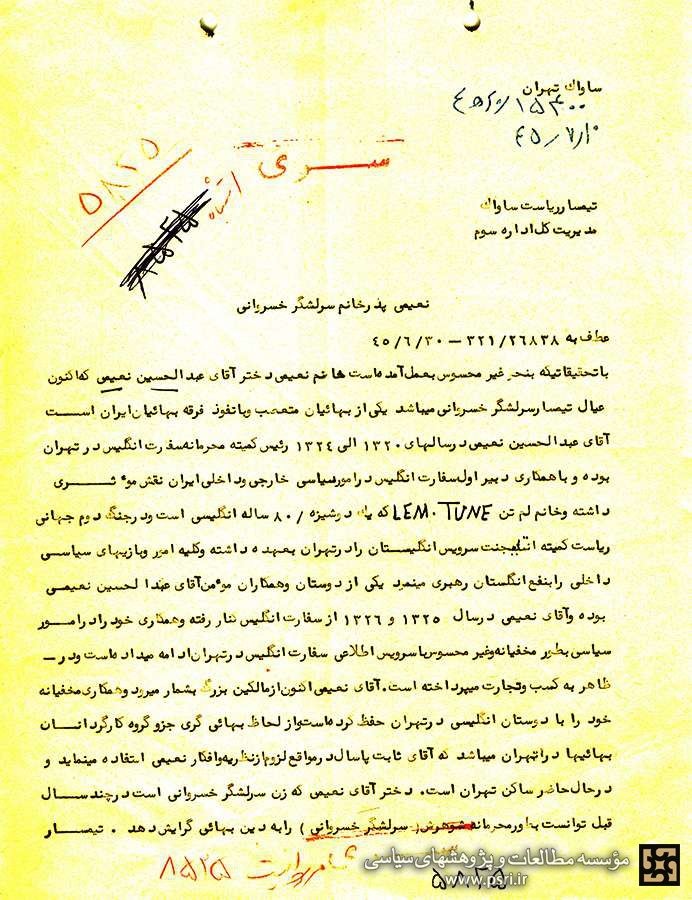 ساواك تهران
۱۵۴۰۰
۴۵/۷/۱۰
سری
۵۸۲۵
اشتباه
تیمسار ریاست ساواك
مدیریت کل اداره سوم
نعیمی پدر خانم سرلشگر خسروانی
عطف به ۳۲۱/۲۶۸۳۸ – ۴۵/۶/۳۰
با تحقیقاتیکه بنحو غیر محسوس بعمل آمده است خانم نعیمی دختر آقای عبدالحسین نعیمی که اکنون
عیال تیمسار سرلشگر خسروانی میباشد یکی از بهائیان متعصب و با نفوذ فرقه بهائیان ایران است
آقای عبدالحسین نعیمی در سالهای ۱۳۲۰ الی ۱۳۲۴ رئیس کمیته محرمانه سفارت انگلیس در تهران
بوده و با همکاری دبیر اول سفارت انگلیس در امور سیاسی خارجی و داخلی ایران نقش موثری
داشته و خانم لم تن LEM.TUNE که یك دوشیزه ۸۰/ ساله انگلیسی است و در جنگ دوم جهانی
ریاست کمیته انتلیجنت سرویس انگلیستان را در تهران بعهده داشته و کلیه امور و بازیهای سیاسی
داخلی را بنفع انگلستان رهبری مینمود یکی از دوستان و همکاران موءمن آقای عبدالحسین نعیمی
بوده و آقای نعیمی در سال ۱۳۲۵ و ۱۳۲۶ از سفارت انگلیس کنار رفته و همکاری خود را در امور
سیاسی بطور مخفیانه و غیر محسوس با سرویس اطلاعی سفارت انگلیس در تهران ادامه میداده است و در –
ظاهر به کسب و تجارت میپرداخته است. آقای نعیمی اکنون از مالکین بزرگ بشمار میرود و همکاری مخفیانه
خود را با دوستان انگلیسی در تهران حفظ کرده است و از لحاظ بهائی گری جزو گروه کارگردانان
بهائیها در تهران میباشد که آقای ثابت پاسال در مواقع لزوم از نظریه و افکار نعیمی استفاده مینماید و
در حال حاضر ساکن تهران است. دختر آقای نعیمی که زن سرلشگر خسروانی است در چند سال
قبل توانست بطور محرمانه شوهرش ( سرلشگر خسروانی ) را به دین بهائی گرایش دهد . تیمسار
۸۵۲۵
۵۸۲۵
مؤسسه مطالعات و پژوهشهای سیاسی
www.psri.ir